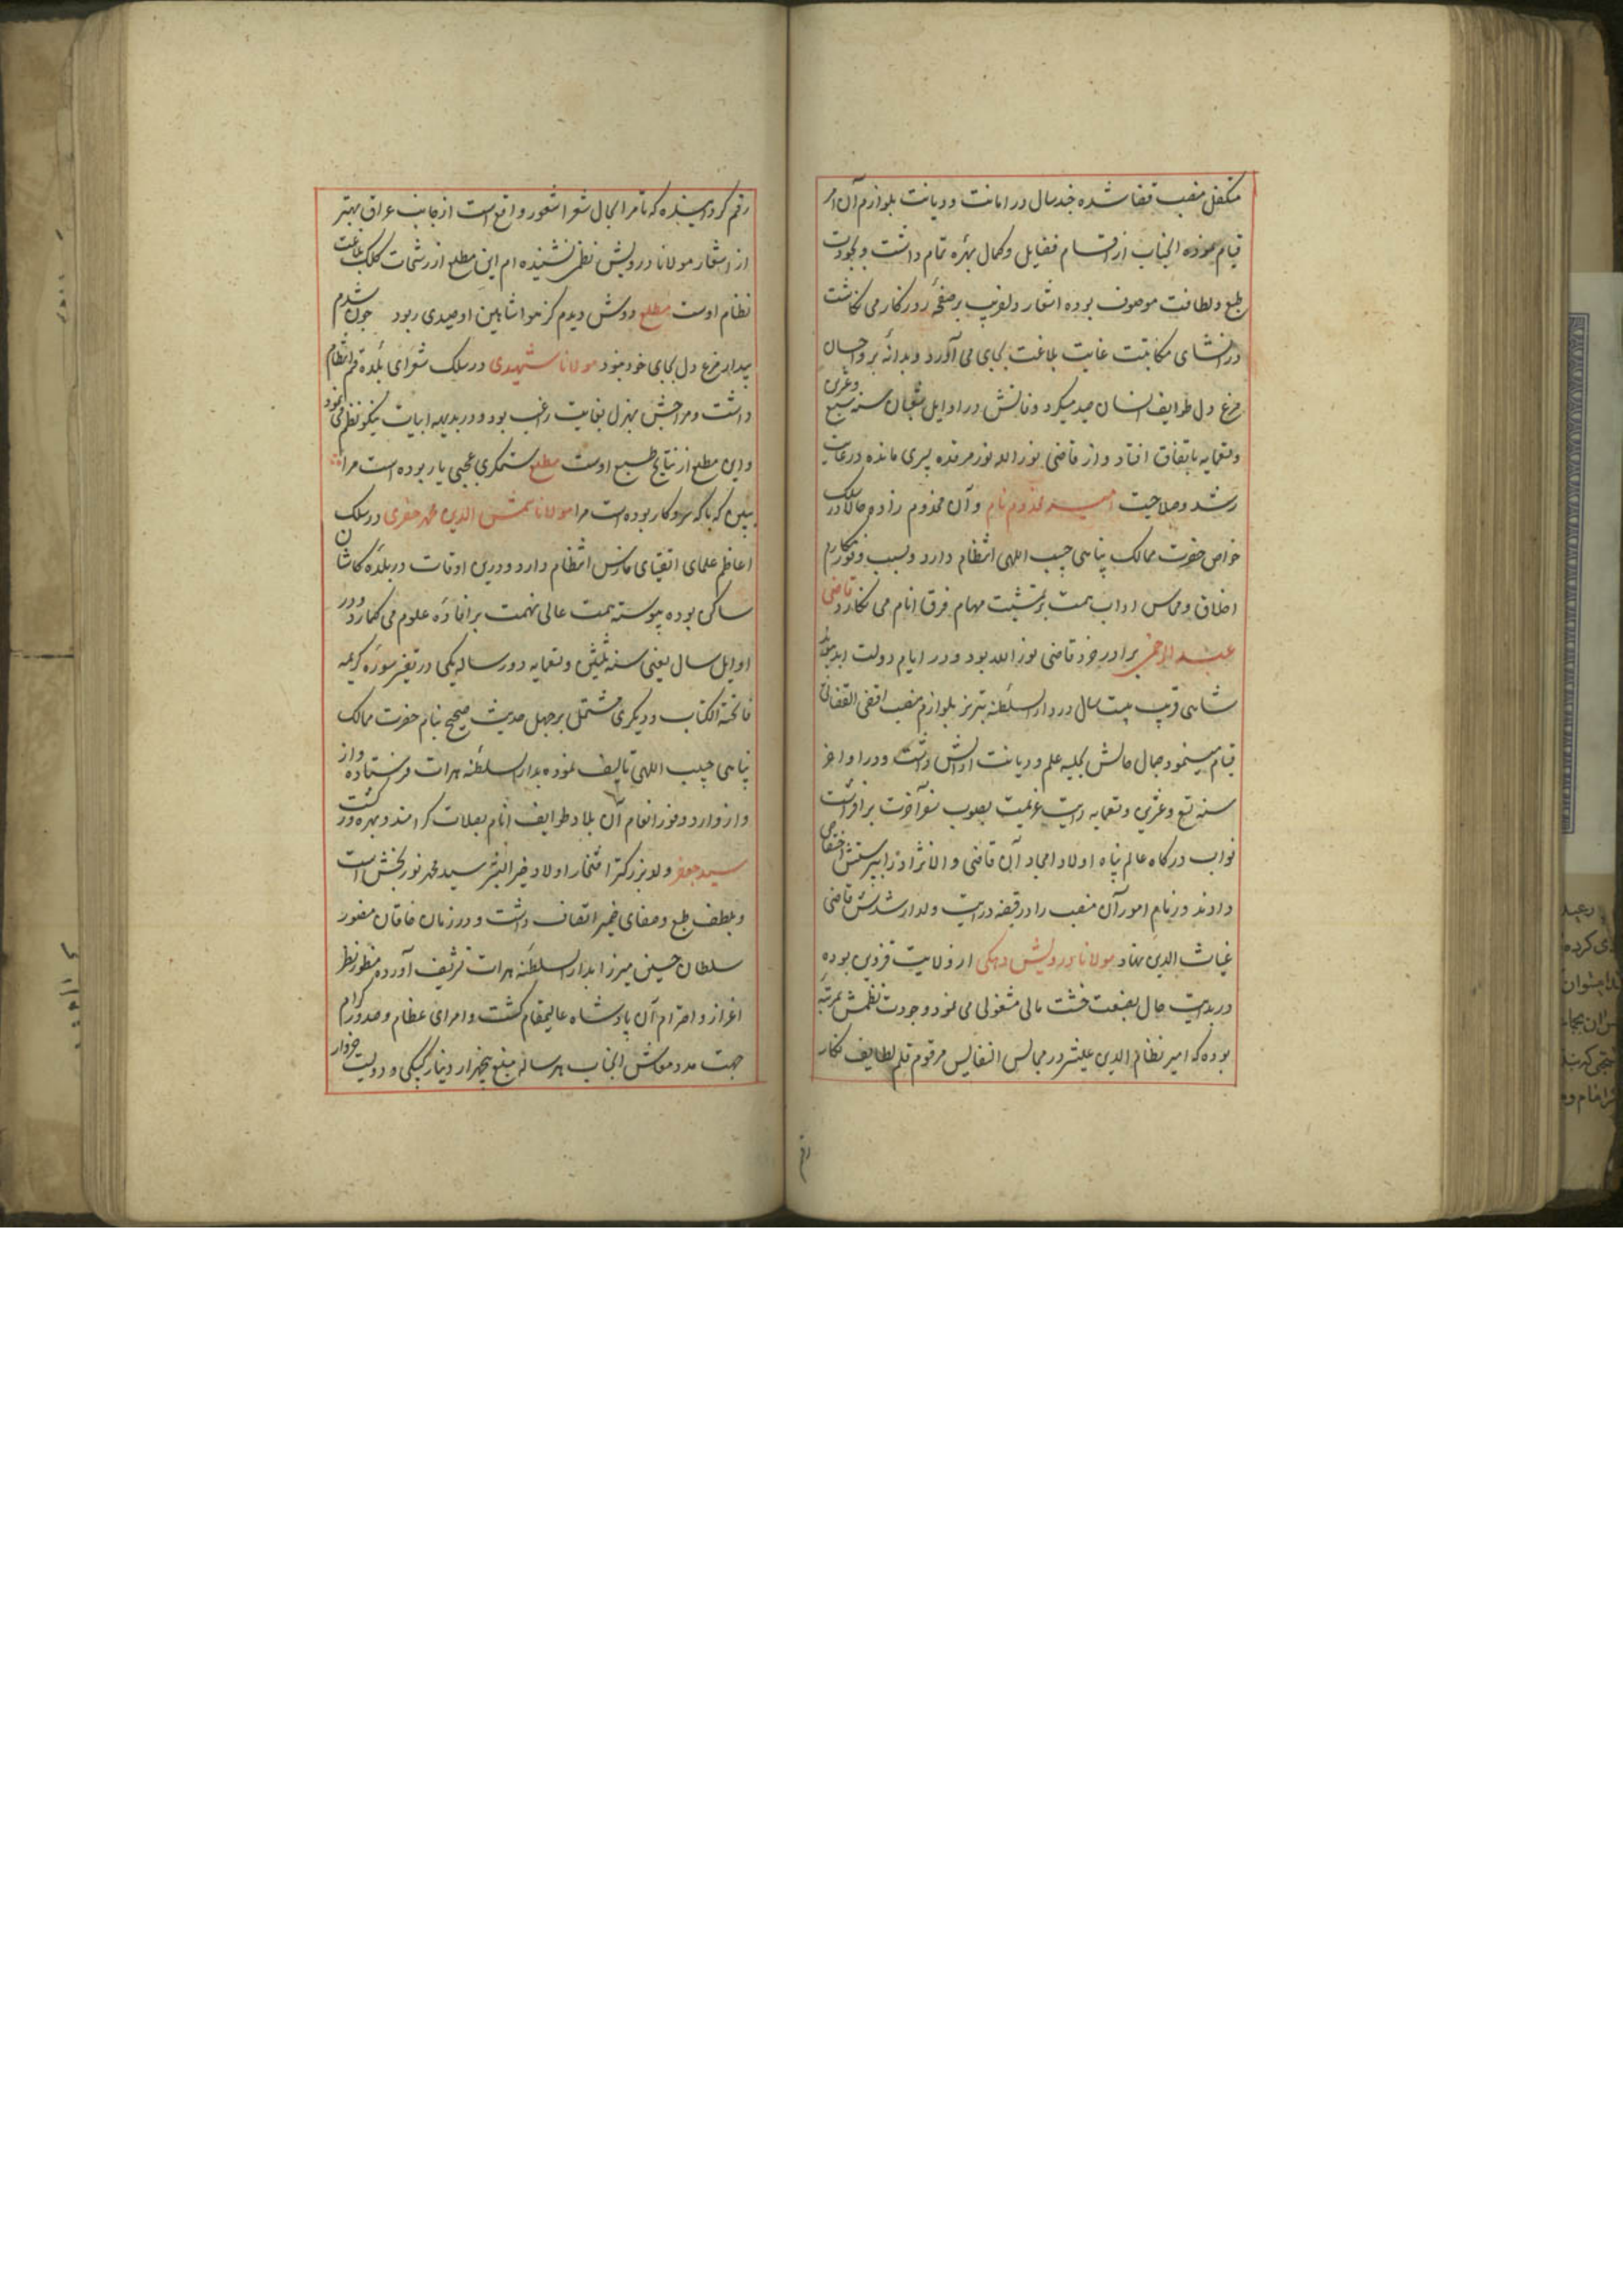 متکفل منصب قضا شده چند سال در امانت و دیانت بلوازم آن امر
قیام نموده آنجناب از اقسام فضایل و کمال بهره تمام داشت و بجودت
طبع و لطافت موصوف بوده اشعار دلفریب بر صفحه روزکار می نکاشت
در انشای مکاتبت غایت بلاغت بجای می آورد و بدانه بر و احسان
مرغ دل طوایف انسان صید میکرد وفاتش در اوایل شعبان سنه سبع وعشرین
وتسعمایه باتفاق افتاد و از قاضی نور الله نور مرقده پسری مانده در غایت
رشد و صلاحیت مخدوم نام و آن مخدوم زاده حالا در سلک
خواص حضرت ممالک پناهی حبیب اللهی انتظام دارد و بسبب وفور مکارم
اخلاق و محاسن اداب همت بر تمشیت مهام فرق انام می نکارد قاضی
عبد الرحمن برادر خرد قاضی نور الله بود و در ایام دولت ابد پیوند
شاهی قریب بیست سال در دار السلطنه تبریز بلوازم منصب اقضی القضاتی
قیام مینمود جمال حالش بحلیه علم و دیانت ارایش داشت و در اواخر
سنه تسع وعشرین وتسعمایه رایت عزیمت بصوب سفر آخرت برافراشت
نواب درکاه عالم پناه اولاد امجاد آن قاضی والا نژاد را بپرسش اختصاص
دادند و زمام امور آن منصب را در قبضه درایت ولد ارشدش قاضی
غیاث الدین نهاد مولانا درویش دهکی از ولایت قزوین بوده
در بدایت حال بصنعت خشت مالی مشغولی می نمود و جودت نظمش بمرتبه
بوده که امیر نظام الدین علیشیر در مجالس النفایس مرقوم قلم لطایف نکار
رقم
رقم کردانیده که تا مرا بحال شعرا شعور واقع است از جانب عراق بهتر
از اشعار مولانا درویش نظمی نشنیده ام این مطلع از رشحات کلک بلاغت
نظام اوست مطلع دوش دیدم کز هوا شاهین او صیدی ربود چون شدم
بیدار مرغ دل بجای خود نبود مولانا شهیدی در سلک شعرای بلده قم انتظام
داشت و مزاجش بهزل بغایت راغب بود و در بدیهه ابیات نیکو نظم می نمود
و این مطلع از نتایج طبع اوست مطلع ستمکری عجبی یار بوده است مرا
ببین که با که سر و کار بوده است مرا مولانا شمس الدین محمد خفری در سلک
اعاظم علمای اتقیای فارس انتظام دارد و درین اوقات در بلده کاشان
ساکن بوده پیوسته همت عالی نهمت بر افاده علوم می کمارد و در
اوایل سال یعنی سنه ثلثین وتسعمایه دو رساله یکی در تفسیر سوره کریمه
فاتحة الکتاب و دیکری مشتمل بر چهل حدیث صحیح بنام حضرت ممالک
پناهی حبیب اللهی تالیف نموده بدار السلطنه هرات فرستاده و از
وفور انعام آن ملاذ طوایف انام بصلات کرامند بهره ور کشت
سید جعفر ولد بزرکتر افتخار اولاد خیر البشر سید محمد نور بخش است
و بلطف طبع و صفای ضمیر اتصاف داشت و در زمان خاقان مغفور
سلطان حسین میرزا بدار السلطنه هرات تشریف آورده منظور نظر
اعزاز و احترام آن پادشاه عالیمقام کشت و امرای عظام و صدور کرام
جهت مدد معاش آنجناب هر ساله مبلغ پنجهزار دینار کپکی و دویست خروار